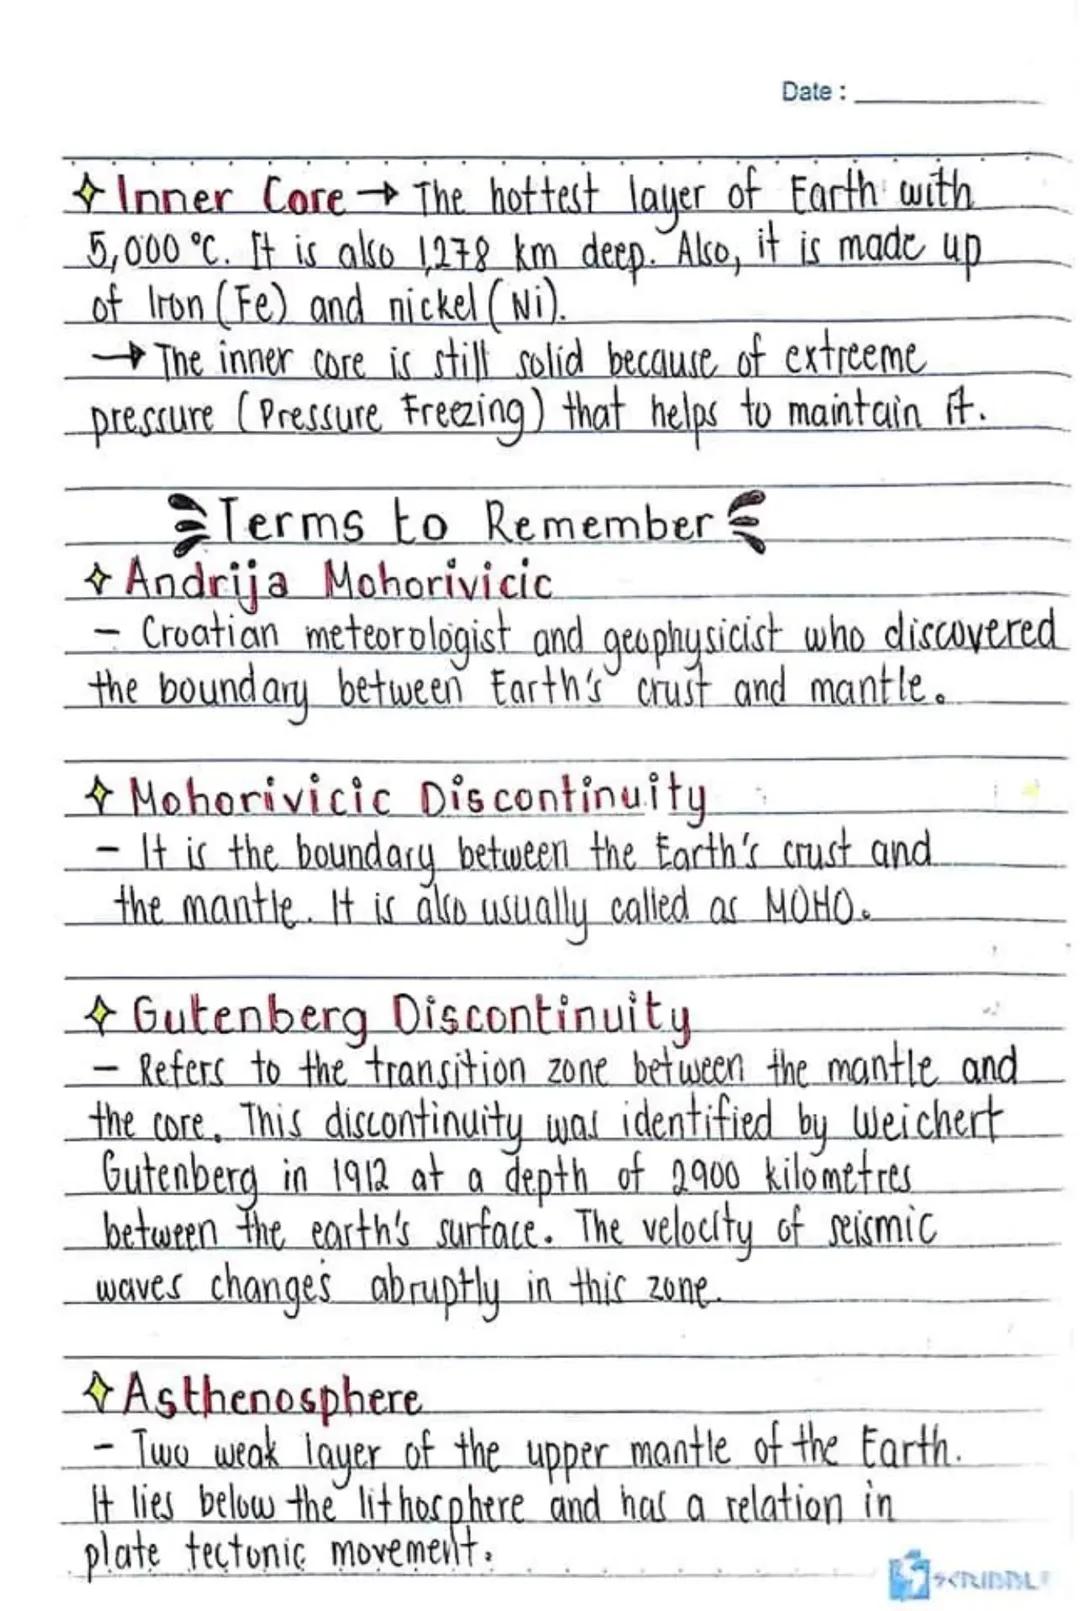 Date :
Inner Core → The hottest layer of Earth with
5,000 °C. It is also 1,278 km deep. Also, it is made up
of Iron (Fe) and nickel (Ni).
→ The inner core is still solid because of extreeme
pressure (Pressure Freezing) that helps to maintain it.
Terms to Remember
Andrija Mohorivicic
- Croatian meteorologist and geophysicist who discovered
the boundary between Earth's crust and mantle.
Mohorivicic Discontinuity
- It is the boundary between the Earth's crust and
the mantle. It is also usually called as MOHO.
Gutenberg Discontinuity
- Refers to the transition zone between the mantle and
the core. This discontinuity was identified by Weichert
Gutenberg in 1912 at a depth of 2900 kilometres
between the earth's surface. The velocity of seismic
waves changes abruptly in this zone.
Asthenosphere
- Two weak layer of the upper mantle of the Earth.
It lies below the lithosphere and has a relation in
plate tectonic movement.
SCRIBBLE